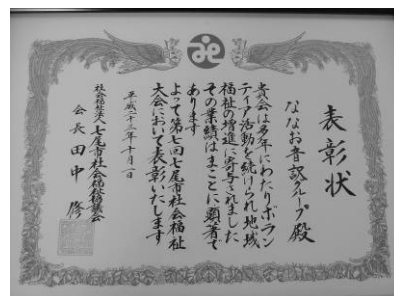 表彰状
ななお音訳グループ殿
貴会は多年にわたりボラン
ティア活動を続けられ地域
福祉の増進に寄与されました
その業績はまことに顕著で
あります
よって第七回七尾市社会福祉
大会において表彰いたします
平成二十三年十月一日
社会福祉法人七尾市社会福祉協議会
会長田中修